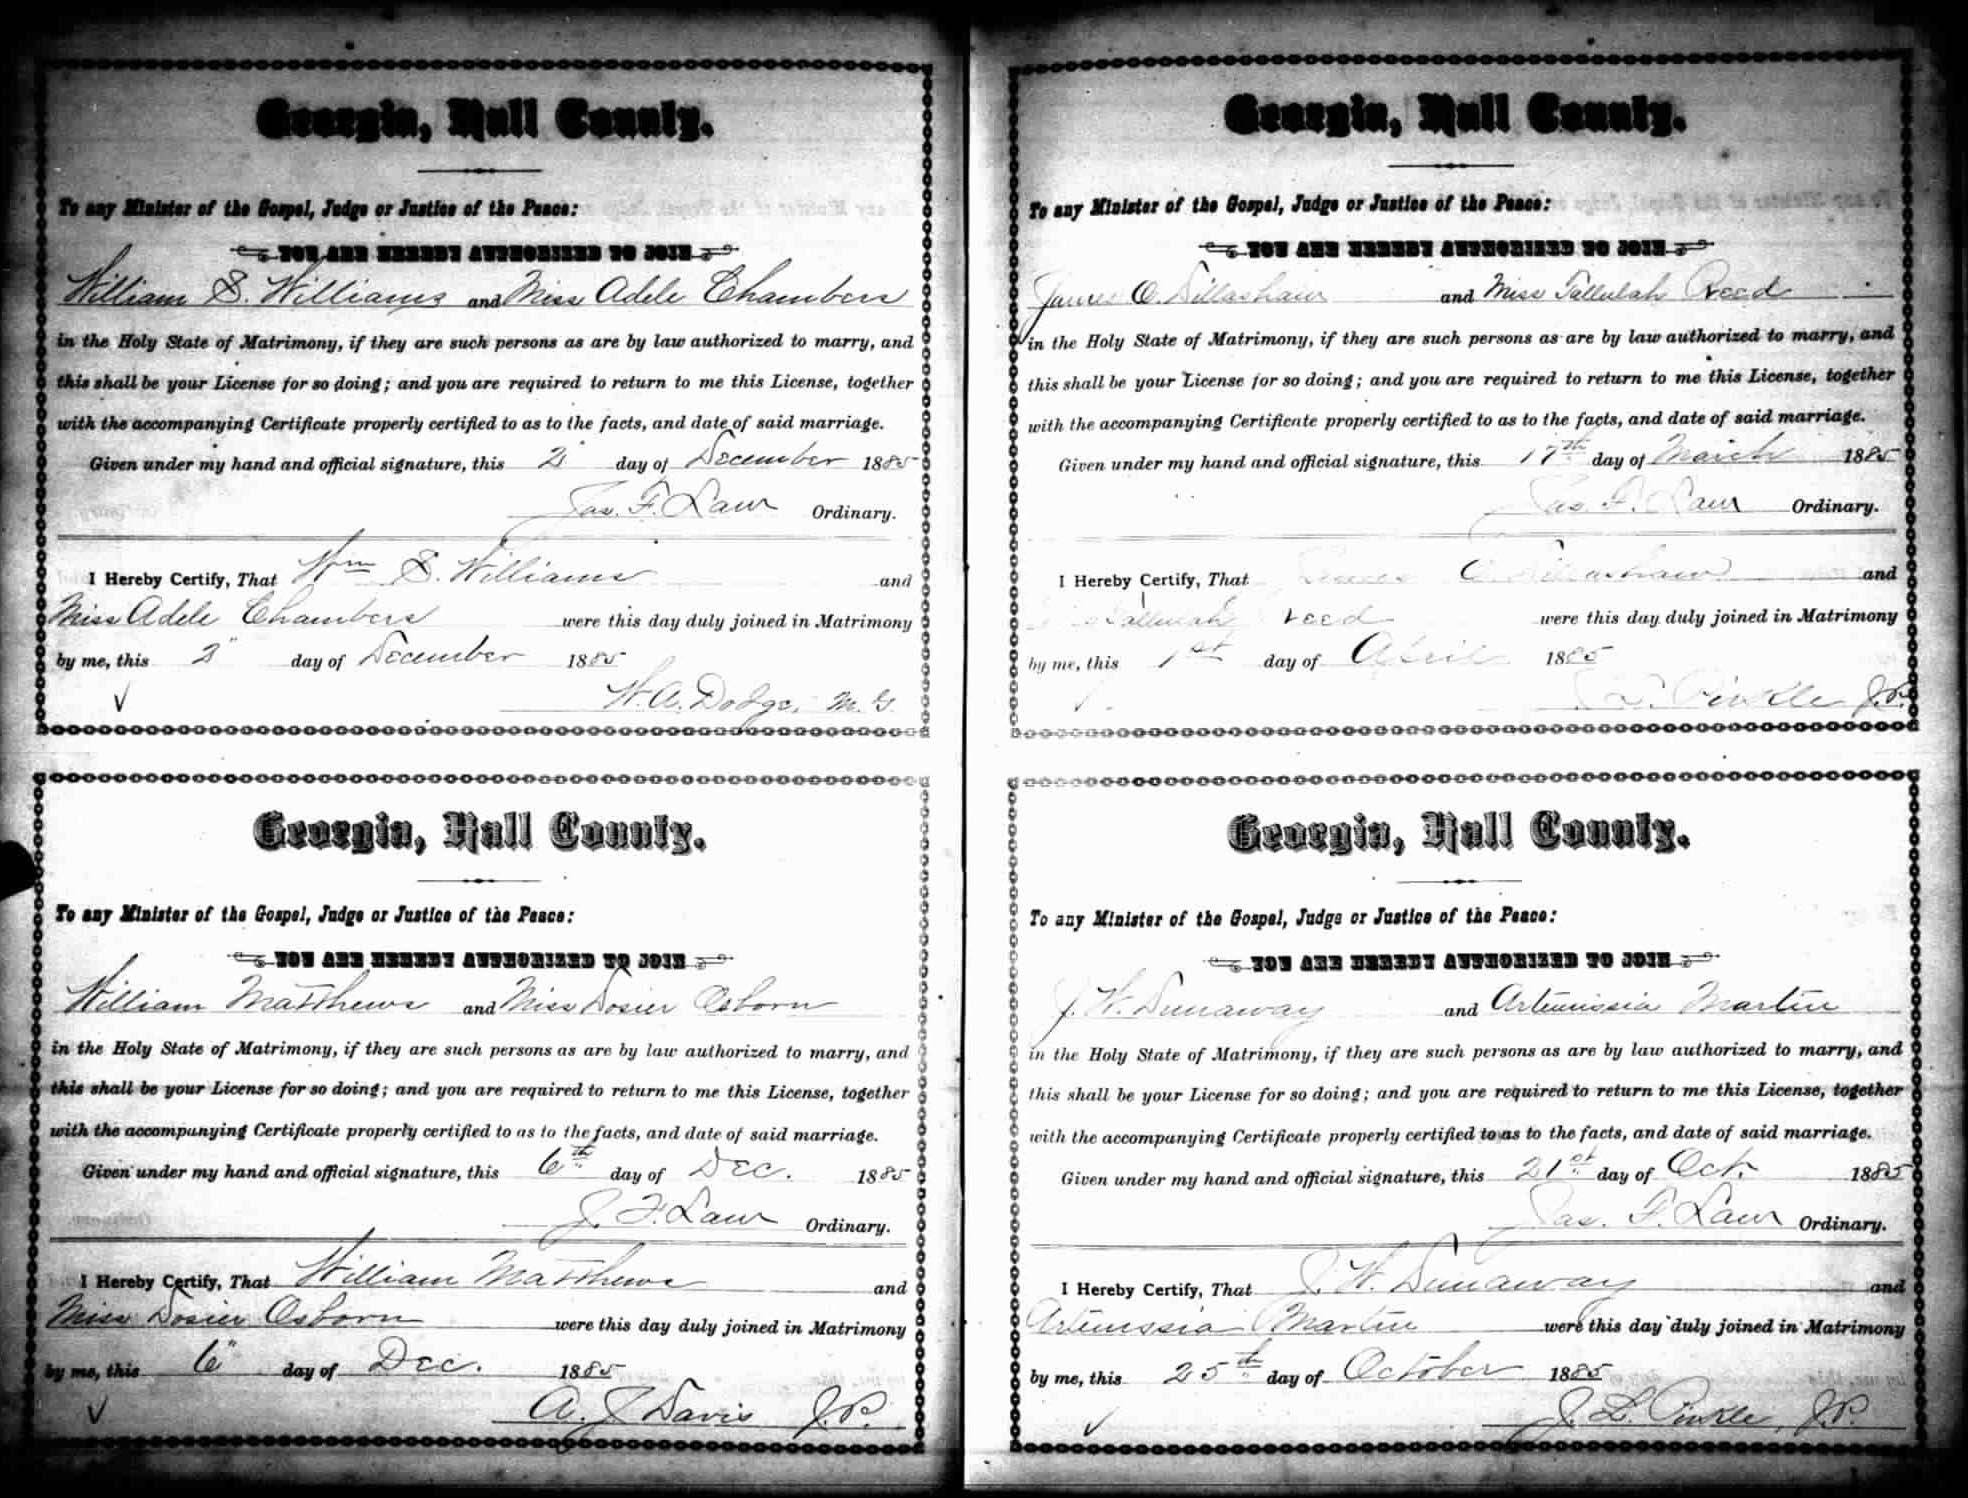 Georgia, Hall County.
To any Minister of the Gospel, Judge or Justice of the Peace:
YOU ARE HEREBY AUTHORIZED TO JOIN
William S. Williams and Miss Adele Chambers
in the Holy State of Matrimony, if they are such persons as are by law authorized to marry, and
this shall be your License for so doing; and you are required to return to me this License, together
with the accompanying Certificate properly certified to as to the facts, and date of said marriage.
Given under my hand and official signature, this 2" day of December 1885
Jas. F. Law Ordinary.
I Hereby Certify, That Wm S. Williams and
Miss Adele Chambers were this day duly joined in Matrimony
by me, this 2" day of December 1885
W. A. Dodge, M. G.
Georgia, Hall County.
To any Minister of the Gospel, Judge or Justice of the Peace:
YOU ARE HEREBY AUTHORIZED TO JOIN
William Matthews and Miss Dosier Osborn
in the Holy State of Matrimony, if they are such persons as are by law authorized to marry, and
this shall be your License for so doing; and you are required to return to me this License, together
with the accompanying Certificate properly certified to as to the facts, and date of said marriage.
Given under my hand and official signature, this 6th day of Dec. 1885
J. F. Law Ordinary.
I Hereby Certify, That William Matthews and
Miss Dosier Osborn were this day duly joined in Matrimony
by me, this 6" day of Dec. 1885
A. J. Davis J. P.
Georgia, Hall County.
To any Minister of the Gospel, Judge or Justice of the Peace:
YOU ARE HEREBY AUTHORIZED TO JOIN
James O. Dillashaw and Miss Tallulah Reed
in the Holy State of Matrimony, if they are such persons as are by law authorized to marry, and
this shall be your License for so doing; and you are required to return to me this License, together
with the accompanying Certificate properly certified to as to the facts, and date of said marriage.
Given under my hand and official signature, this 17th day of March 1885
Jas. F. Law Ordinary.
I Hereby Certify, That James O. Dillashaw and
Tallulah Reed were this day duly joined in Matrimony
by me, this 1st day of April 1885
Pinkle J. P.
Georgia, Hall County.
To any Minister of the Gospel, Judge or Justice of the Peace:
YOU ARE HEREBY AUTHORIZED TO JOIN
J. W. Dunaway and Artemissia Martin
in the Holy State of Matrimony, if they are such persons as are by law authorized to marry, and
this shall be your License for so doing; and you are required to return to me this License, together
with the accompanying Certificate properly certified to as to the facts, and date of said marriage.
Given under my hand and official signature, this 21st day of Oct. 1885
Jas. F. Law Ordinary.
I Hereby Certify, That J. W. Dunaway and
Artemissia Martin were this day duly joined in Matrimony
by me, this 25th day of October 1885
J. L. Pinkle, J. P.